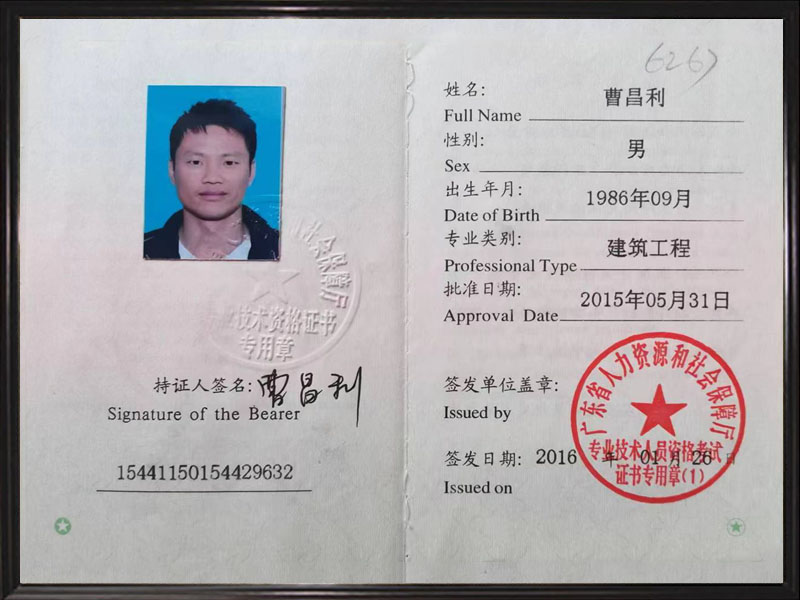 社会保障厅
业技术资格证书
专用章
持证人签名: 曹昌利
Signature of the Bearer
15441150154429632
6267
姓名: 曹昌利
Full Name
性别: 男
Sex
出生年月: 1986年09月
Date of Birth
专业类别: 建筑工程
Professional Type
批准日期: 2015年05月31日
Approval Date
签发单位盖章:
Issued by
广东省人力资源和社会保障厅
专业技术人员资格考试
证书专用章(1)
签发日期: 2016 年 01 月 26 日
Issued on